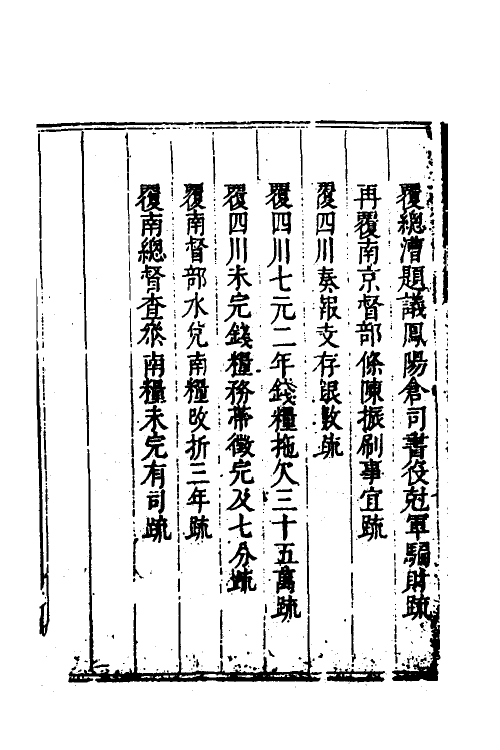 覆總漕題議鳳陽倉司書役尅軍騙財疏
再覆南京督部條陳振刷事宜疏
覆四川奏報支存銀數疏
覆四川七元二年錢糧拖欠三十五萬疏
覆四川未完錢糧務帶徵完及七分疏
覆南督部水兌南糧改折三年疏
覆南總督查叅南糧未完有司疏